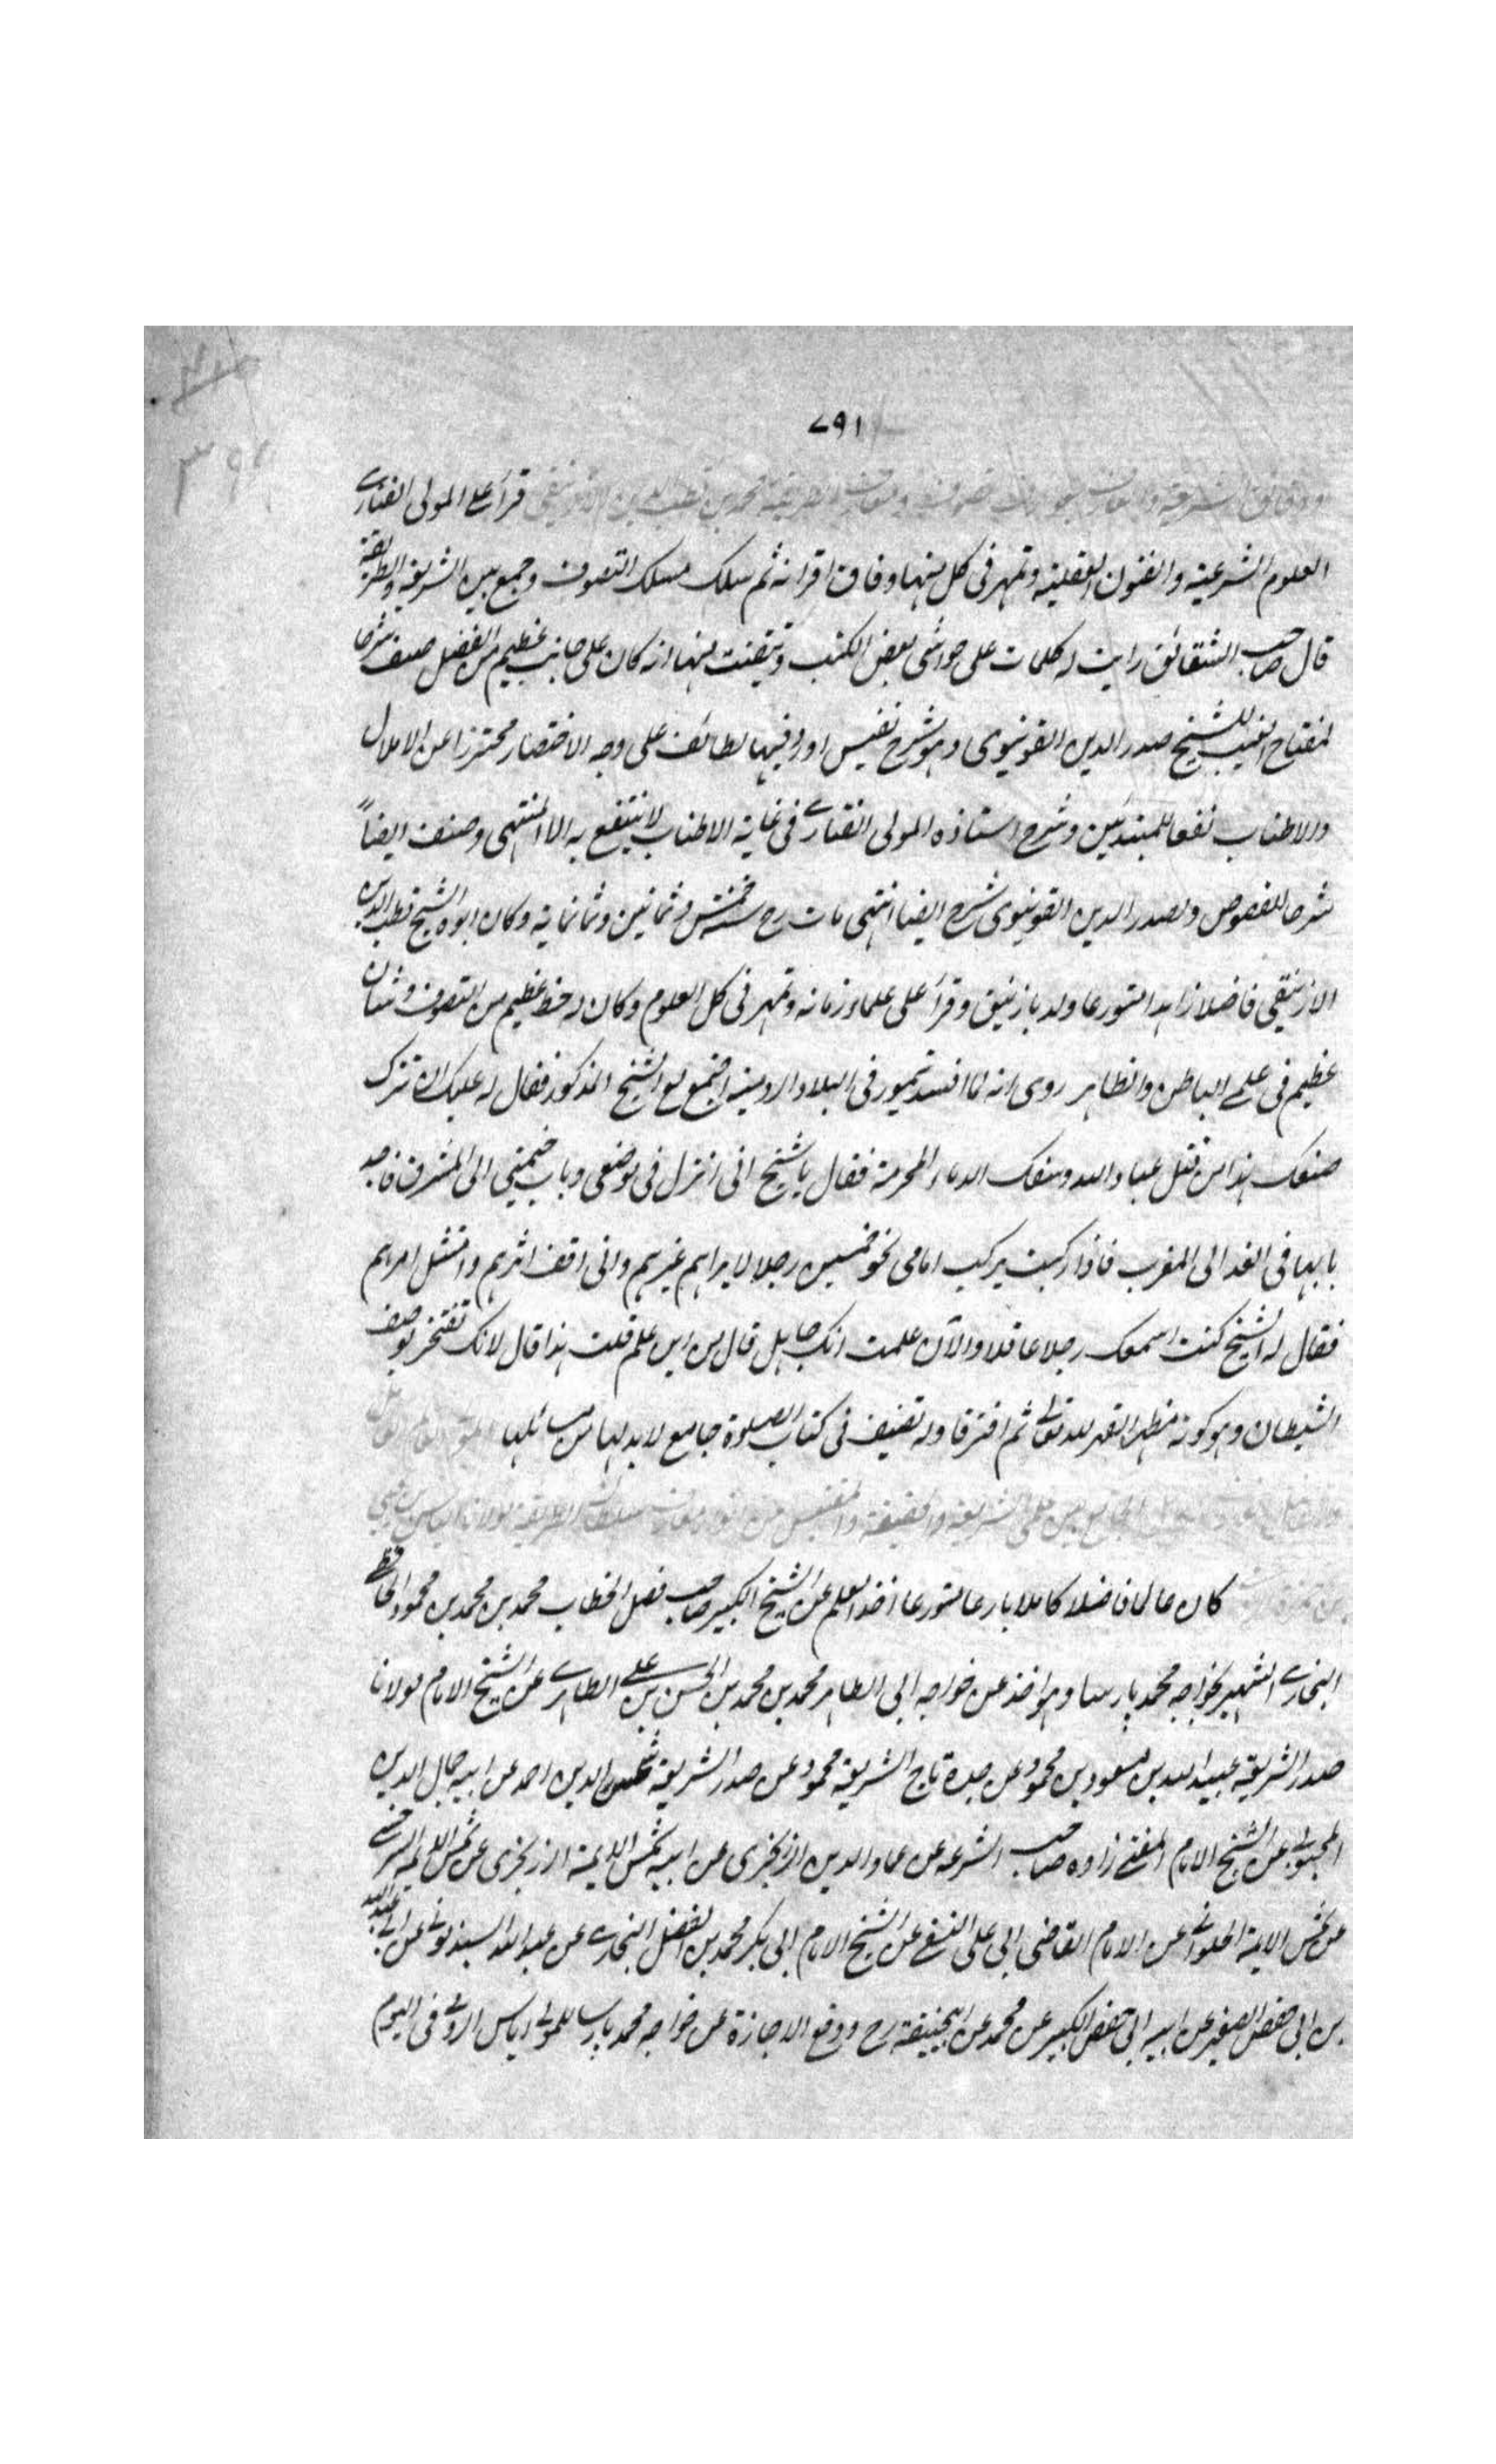 ٧٩١
قرأ على المولى الفنارى
العلوم الشرعية والفنون العقلية وتمهر فى كل منها وفاق اقرانه ثم سلك مسلك التصوف وجمع بين الشريعة والطريقة
قال صاحب الشقائق رايت له كلمات على حواشى بعض الكتب وتيقنت منها انه كان على جانب عظيم من الفضل صنف شرحا
لمفتاح الغيب للشيخ صدر الدين القونيوى وهو شرح نفيس اورد فيها لطائف على وجه الاختصار محترزا عن الاملال
والاطناب نفعا للمبتدئين وشرح استاذه المولى الفنارى فى غاية الاطناب لا ينتفع به الا المنتهى وصنف ايضاً
شرحا للفصوص ولصدر الدين القونيوى شرح ايضا انتهى مات رح سنة خمس وثمانين وثمانماية وكان ابوه الشيخ قطب الدين
الازنيقى فاضلا زاهدا متورعا ولد بازنيق وقرأ على علماء زمانه وتمهر فى كل العلوم وكان له حظ عظيم من التصوف وشان
عظيم فى علمى الباطن والظاهر روى انه لما افسد تيمور فى البلاد الرومية اجتمع مع الشيخ المذكور فقال له عليك ان تترك
صنعك هذا من قتل عباد الله وسفك الدماء المحرمة فقال يا شيخ انى انزل فى موضعى وباب خيمتى الى المشرق فاجد
بابها فى الغد الى المغرب فاذا ركبت يركب امامى نحو خمسين رجلا لا يراهم غيرهم وانى اقف اثرهم وامتثل امرهم
فقال له الشيخ كنت اسمعك رجلا عاقلا والآن علمت انك جاهل قال من اين علم قلت هذا قال لانك تفتخر بوصف
الشيطان وهو كونه مظهر القهر لله تعالى ثم افترقا وله تصنيف فى كتاب الصلوة جامع لا بد لها من مسائلها
بين علمى الشريعة والحقيقة والمقتبس من انوار سلطان الطريقة مولانا الياس بن يحيى
كان عالما فاضلا كاملا بارعا متورعا اخذ العلم عن الشيخ الكبير صاحب فصل الخطاب محمد بن محمد بن محمود الحافظى
البخارى الشهير بخواجه محمد پارسا وهو اخذ عن خواجه ابى الطاهر محمد بن محمد بن الحسن بن على الطاهرى عن الشيخ الامام مولانا
صدر الشريعة عبيد الله بن مسعود بن محمود عن جده تاج الشريعة محمود عن صدر الشريعة شمس الدين احمد عن ابيه جمال الدين
المحبوبى عن الشيخ الامام المفتى زاده صاحب الشرعه عن عماد الدين الزرنجرى عن ابيه شمس الايمة الزرنجرى عن شمس الايمة السرخسى
عن شمس الايمة الحلوانى عن الامام القاضى ابى على النسفى عن الشيخ الامام ابى بكر محمد بن الفضل البخارى عن عبد الله السبذمونى عن ابى عبد الله
بن ابى حفص الصغير عن ابيه ابى حفص الكبير عن محمد عن ابيحنيفة رح ووقع الاجازة عن خواجه محمد پارسا للمولى الياس الرومى فى اليوم